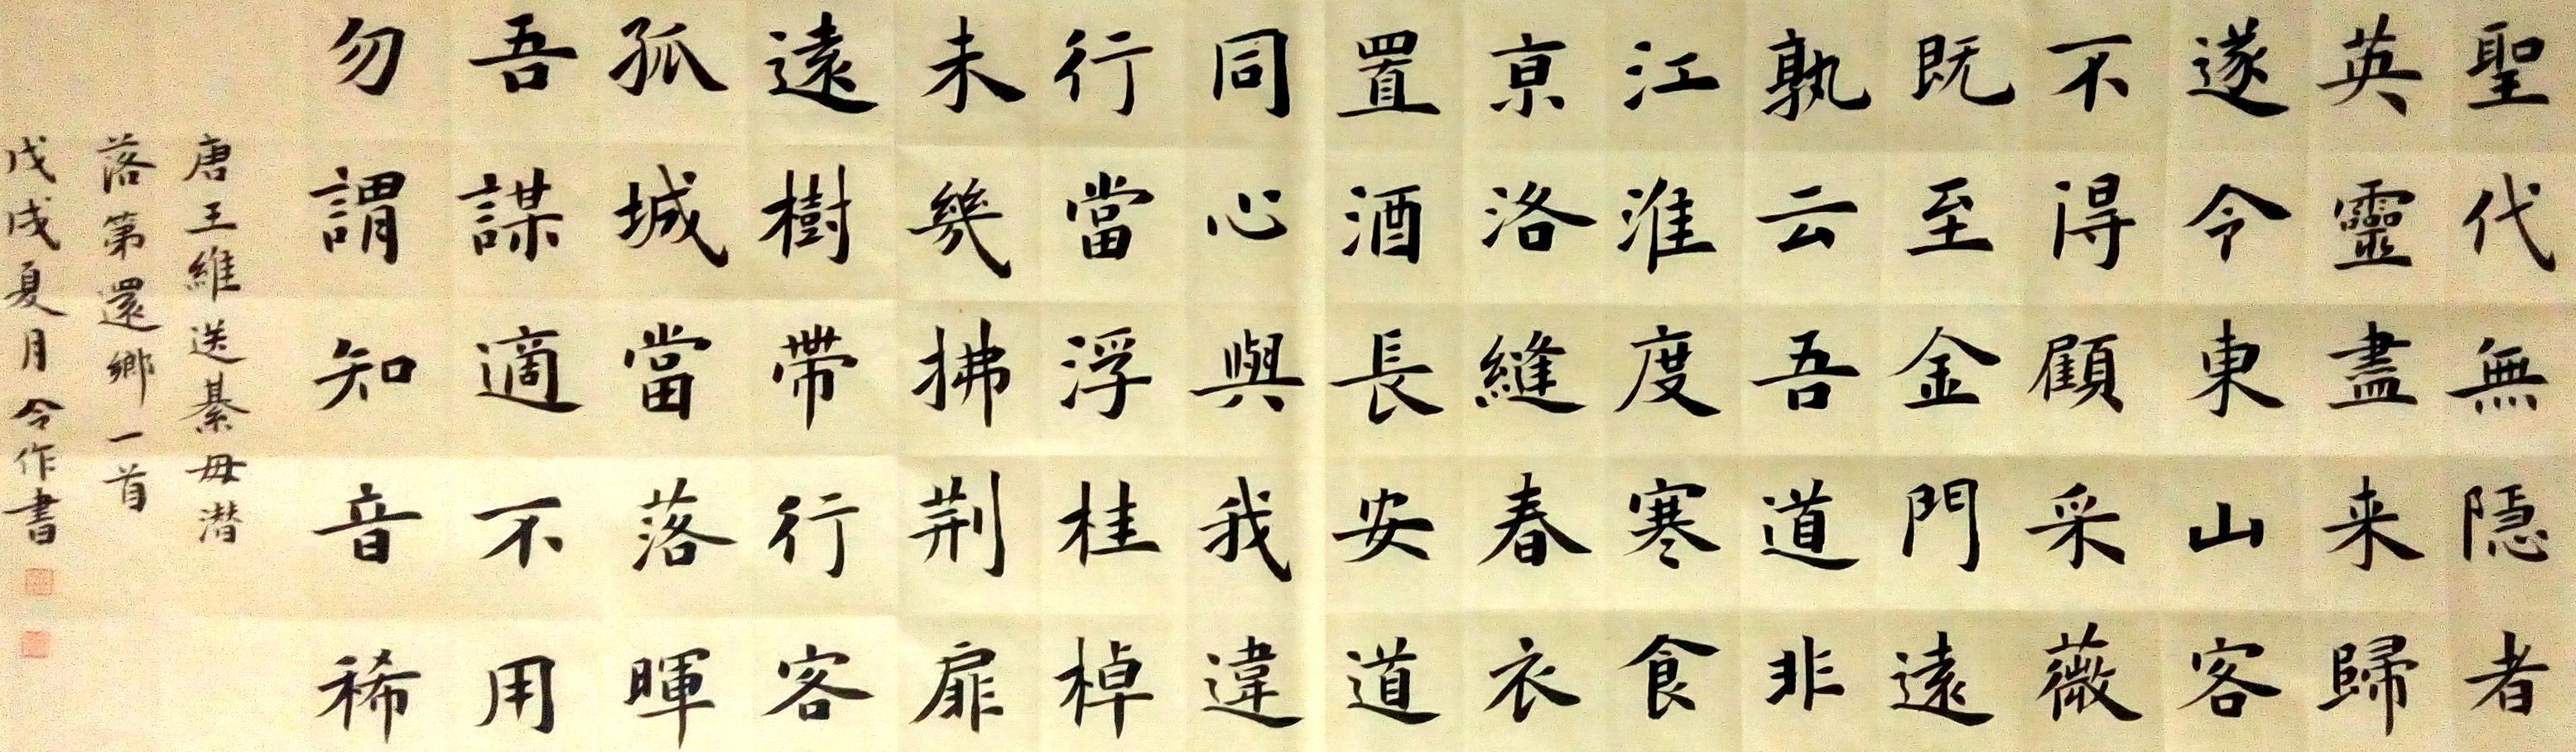 聖代無隱者
英靈盡来歸
遂令東山客
不得顧采薇
既至金門遠
孰云吾道非
江淮度寒食
京洛縫春衣
置酒長安道
同心與我違
行當浮桂棹
未幾拂荆扉
遠樹帶行客
孤城當落暉
吾謀適不用
勿謂知音稀
唐王維送綦毋潜
落第還鄉一首
戊戌夏月令作書